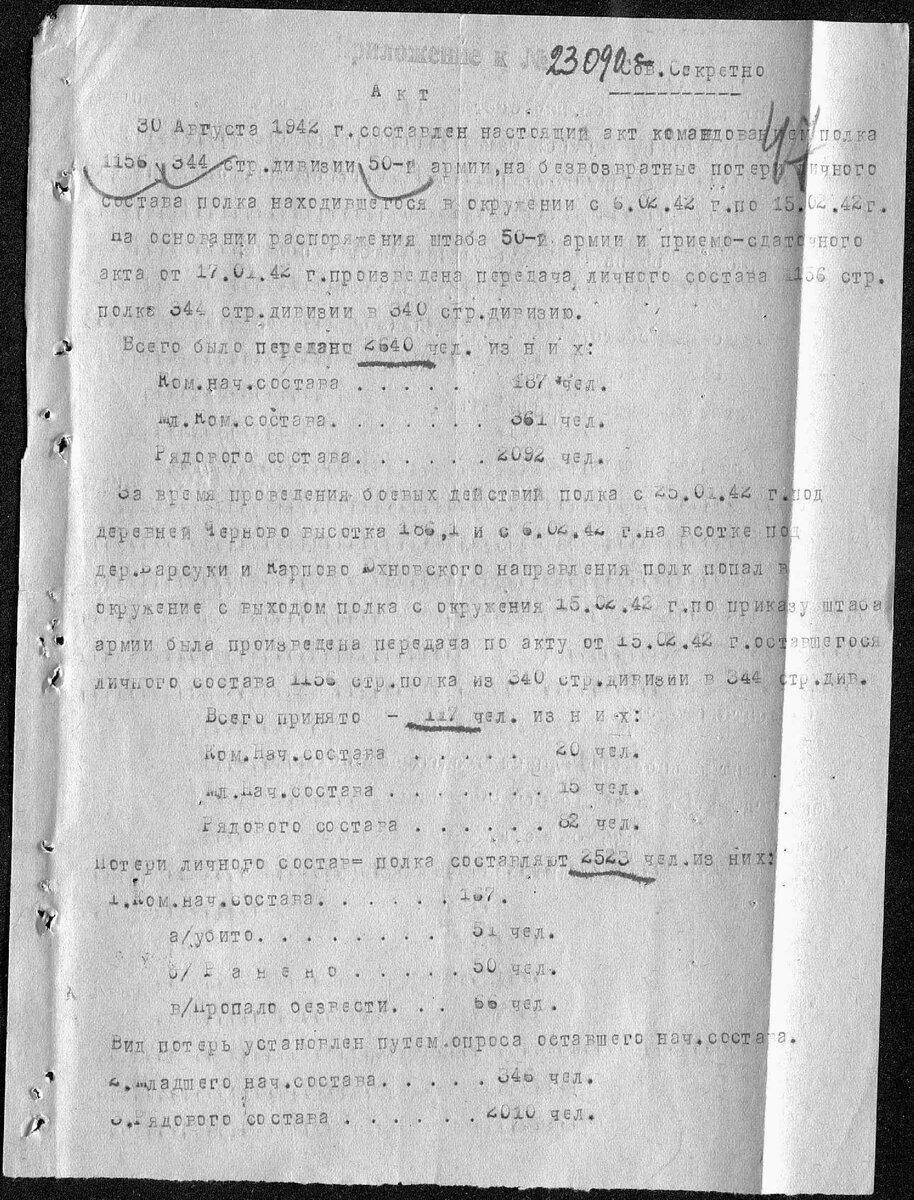 риложение к № 23090с
Сов.Секретно
47
Акт
30 Августа 1942 г.составлен настоящий акт командованием полка
1156, 344 стр.дивизии 50-й армии,на безвозвратные потери личного
состава полка находившегося в окружении с 6.02.42 г.по 15.02.42г.
На основании распоряжения штаба 50-й армии и приемо-сдаточного
акта от 17.01.42 г.произведена передача личного состава 1156 стр.
полка 344 стр.дивизии в 340 стр.дивизию.
Всего было передано 2640 чел. из н и х:
Ком.нач.состава . . . . . 187 чел.
Мл.Ком.состава. . . . . . . 361 чел.
Рядового состава. . . . . . 2092 чел.
За время проведения боевых действий полка с 25.01.42 г.под
деревней Черново высотка 186,1 и с 6.02.42 г.на всотке под
дер.Барсуки и Карпово Юхновского направления полк попал в
окружение с выходом полка с окружения 15.02.42 г.по приказу штаба
армии была произведена передача по акту от 15.02.42 г.оставшегося
личного состава 1156 стр.полка из 340 стр.дивизии в 344 стр.див.
Всего принято - 117 чел. из н и х:
Ком.Нач.состава . . . . . . 20 чел.
Мл.Нач.состава . . . . . . . 15 чел.
Рядового состава . . . . . . 82 чел.
Потери личного состав= полка составляют 2523 чел.из них:
1.Ком.нач.состава. . . . . . 167.
а/убито. . . . . . . . 51 чел.
б/ Р а н е н о . . . . . 50 чел.
в/Пропало безвести. . . 66 чел.
Вид потерь установлен путем.опроса оставшего нач.состава.
2.Младшего нач.состава. . . . . 346 чел.
3.Рядового состава . . . . . . 2010 чел.